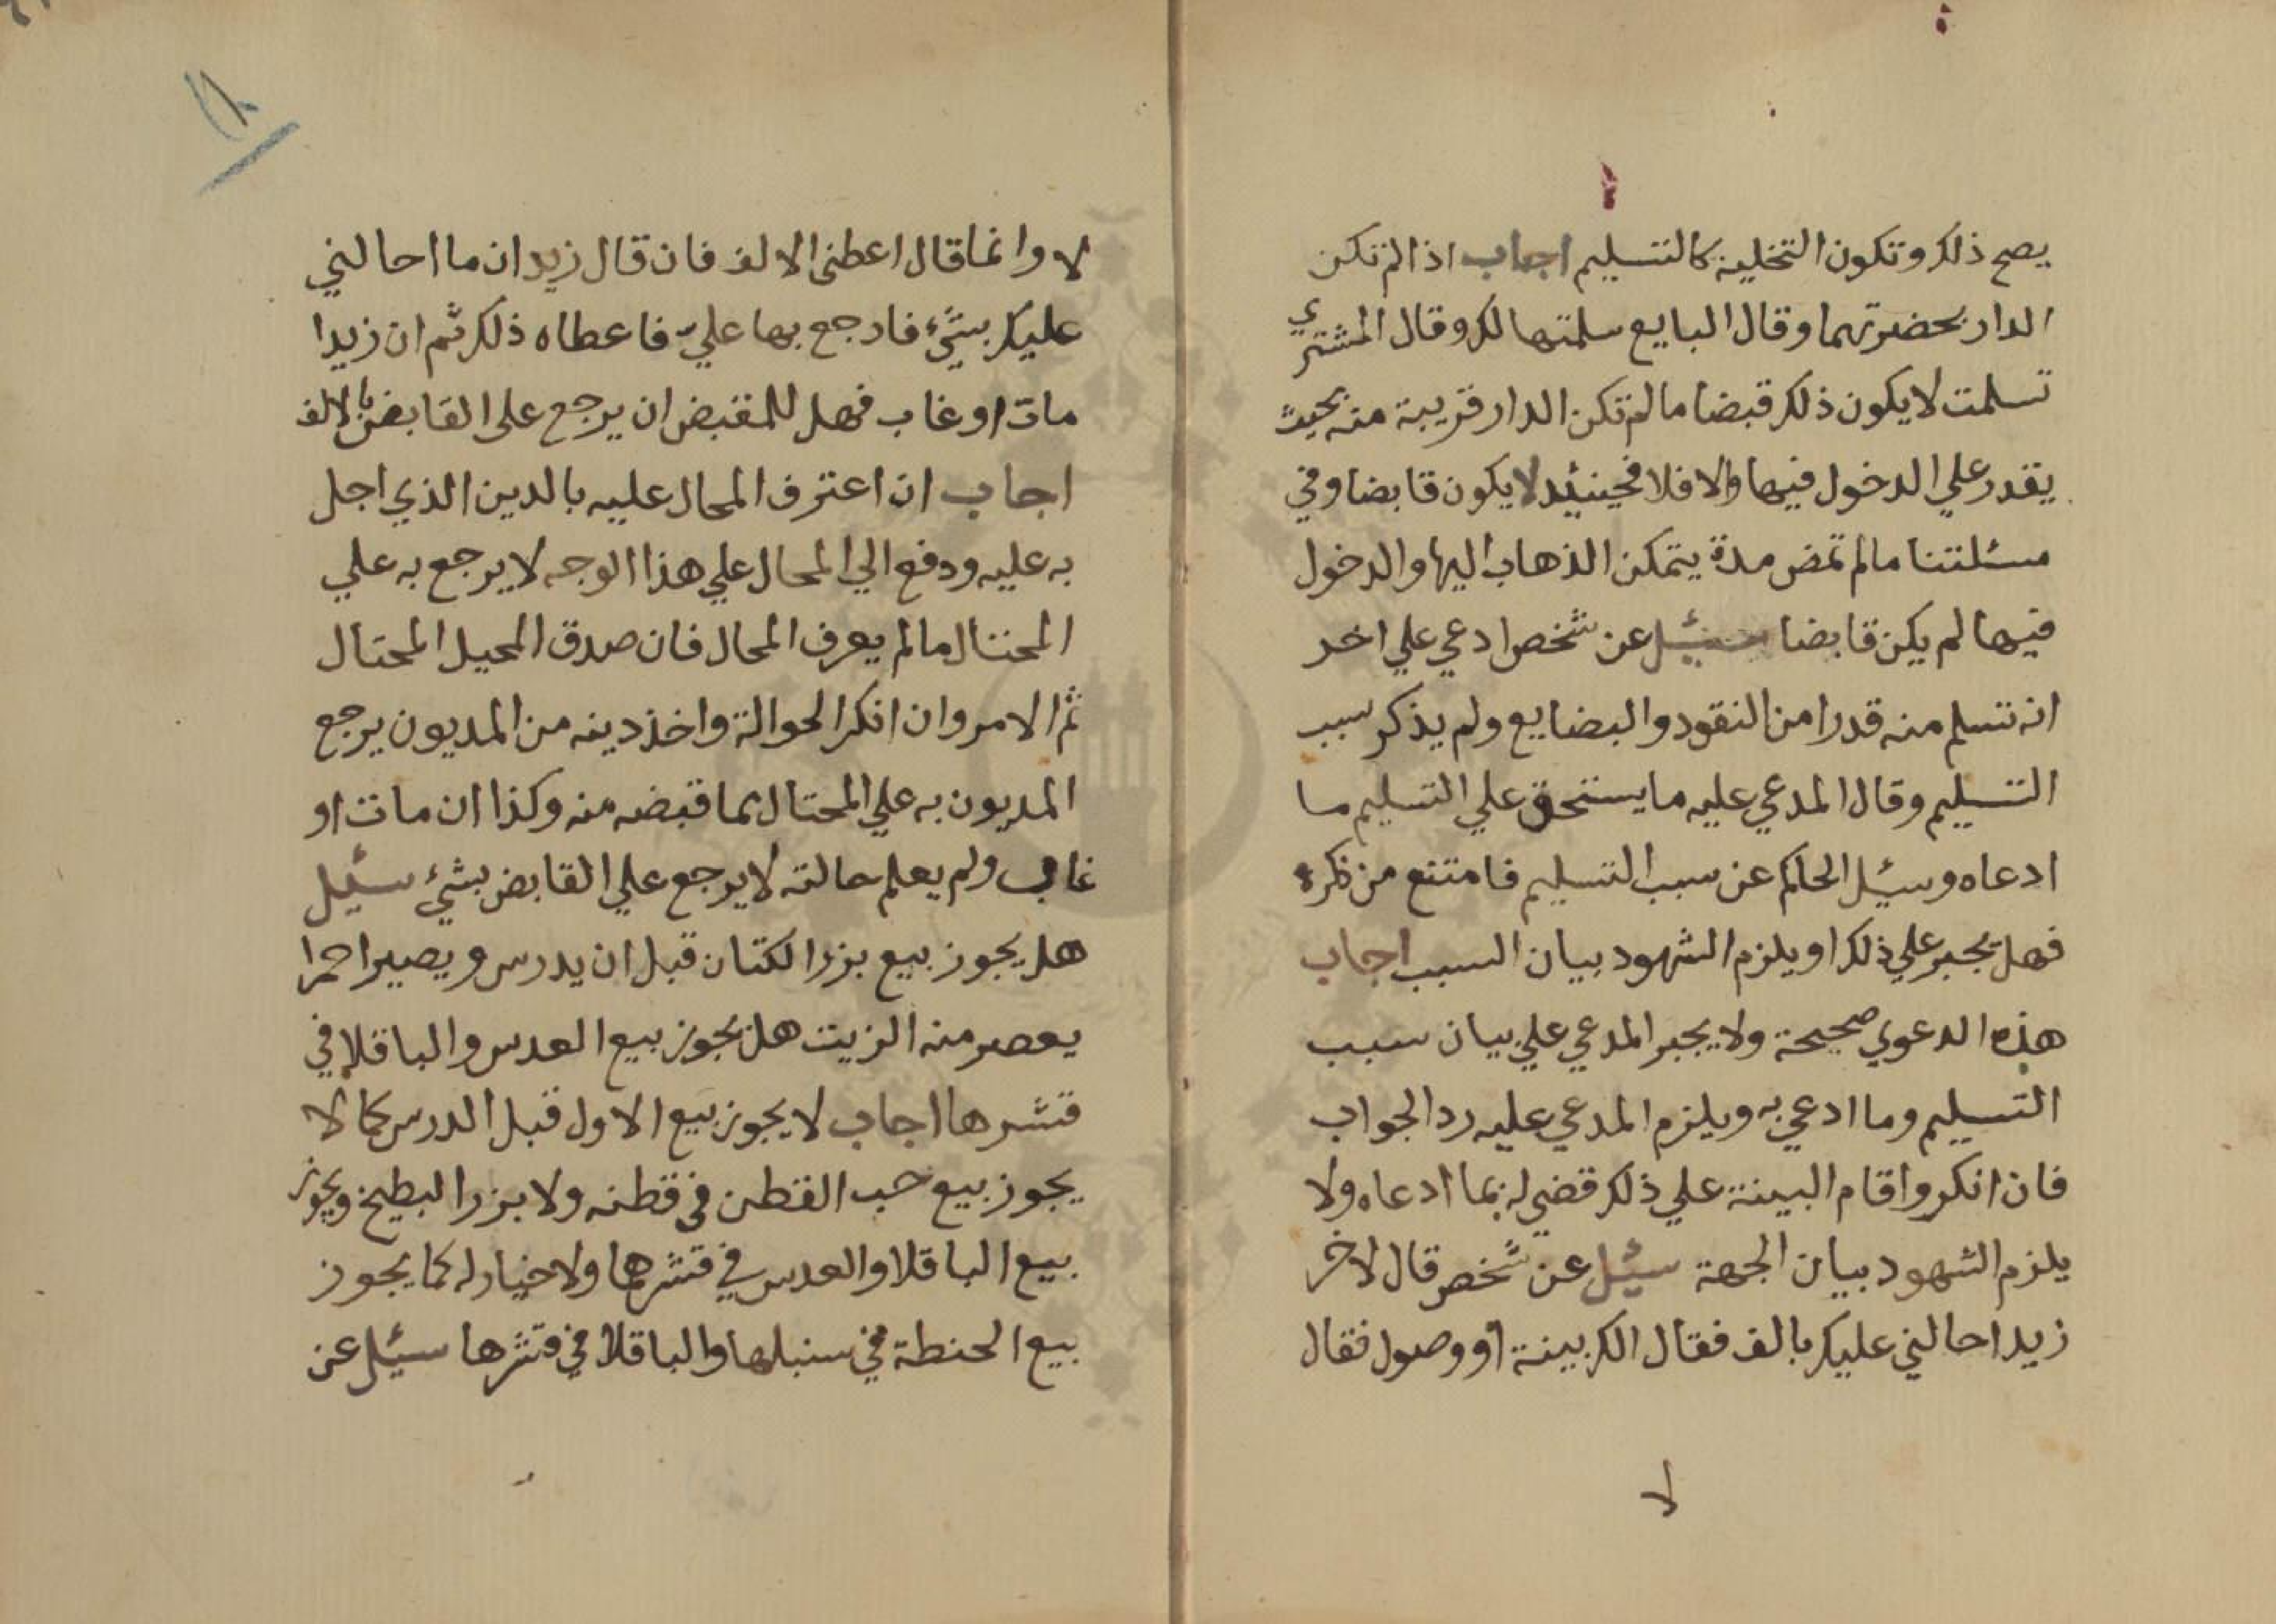 يصح ذلك وتكون التخلية كالتسليم اجاب اذا لم تكن
الدار بحضرتهما وقال البايع سلمتها لك وقال المشتري
تسلمت لا يكون ذلك قبضا ما لم تكن الدار قريبة منه بحيث
يقدر علي الدخول فيها والا فلا فحينئيذ لا يكون قابضا وفي
مسئلتنا مالم تمض مدة يتمكن الذهاب اليها والدخول
فيها لم يكن قابضا سيئل عن شخص ادعي علي اخر
انه تسلم منه قدرا من النقود والبضايع ولم يذكر سبب
التسليم وقال المدعي عليه ما يستحق علي التسليم ما
ادعاه وسيئل الحاكم عن سبب التسليم فامتنع من ذكره
فهل يجبر علي ذلك او يلزم الشهود بيان السبب اجاب
هذه الدعوي صحيحة ولا يجبر المدعي علي بيان سبب
التسليم وما ادعي به ويلزم المدعي عليه رد الجواب
فان انكر واقام البينة علي ذلك قضي له بما ادعاه ولا
يلزم الشهود بيان الجهة سيئل عن شخص قال لاخر
زيد احالني عليك بالف فقال الك بينة او وصول فقال
لا
١٨
لا وانما قال اعطنى الالف فان قال زيد ان ما احالني
عليك بشيء فارجع بها علي فاعطاه ذلك ثم ان زيدا
مات او غاب فهل للمقبض ان يرجع على القابض بالالف
اجاب ان اعترف المحال عليه بالدين الذي اجل
به عليه ودفع الي المحال علي هذا الوجه لا يرجع به علي
المحتال مالم يعرف المحال فان صدق المحيل المحتال
ثم الامر وان انكر الحوالة واخذ دينه من المديون يرجع
المديون به علي المحتال بما قبضه منه وكذا ان مات او
غاب ولم يعلم حالته لا يرجع علي القابض بشيء سيئل
هل يجوز بيع بزر الكتان قبل ان يدرس ويصير احمرا
يعصر منه الزيت هل يجوز بيع العدس والباقلا في
قشرها اجاب لا يجوز بيع الاول قبل الدرس كما لا
يجوز بيع حب القطن في قطنه ولا بزر البطيخ ويجوز
بيع الباقلا والعدس في قشرها ولا خيار له كما يجوز
بيع الحنطة في سنبلها والباقلا في قشرها سيئل عن